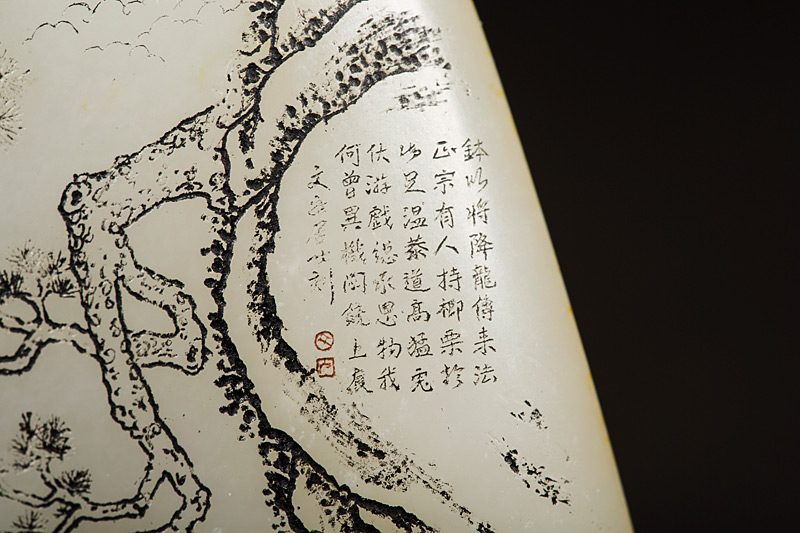 鉢以將降龍傳来法
正宗有人持楖栗於
此足温恭道高猛虎
伏游戲總承恩物我
何曾異機關鏡上痕
文居士刻